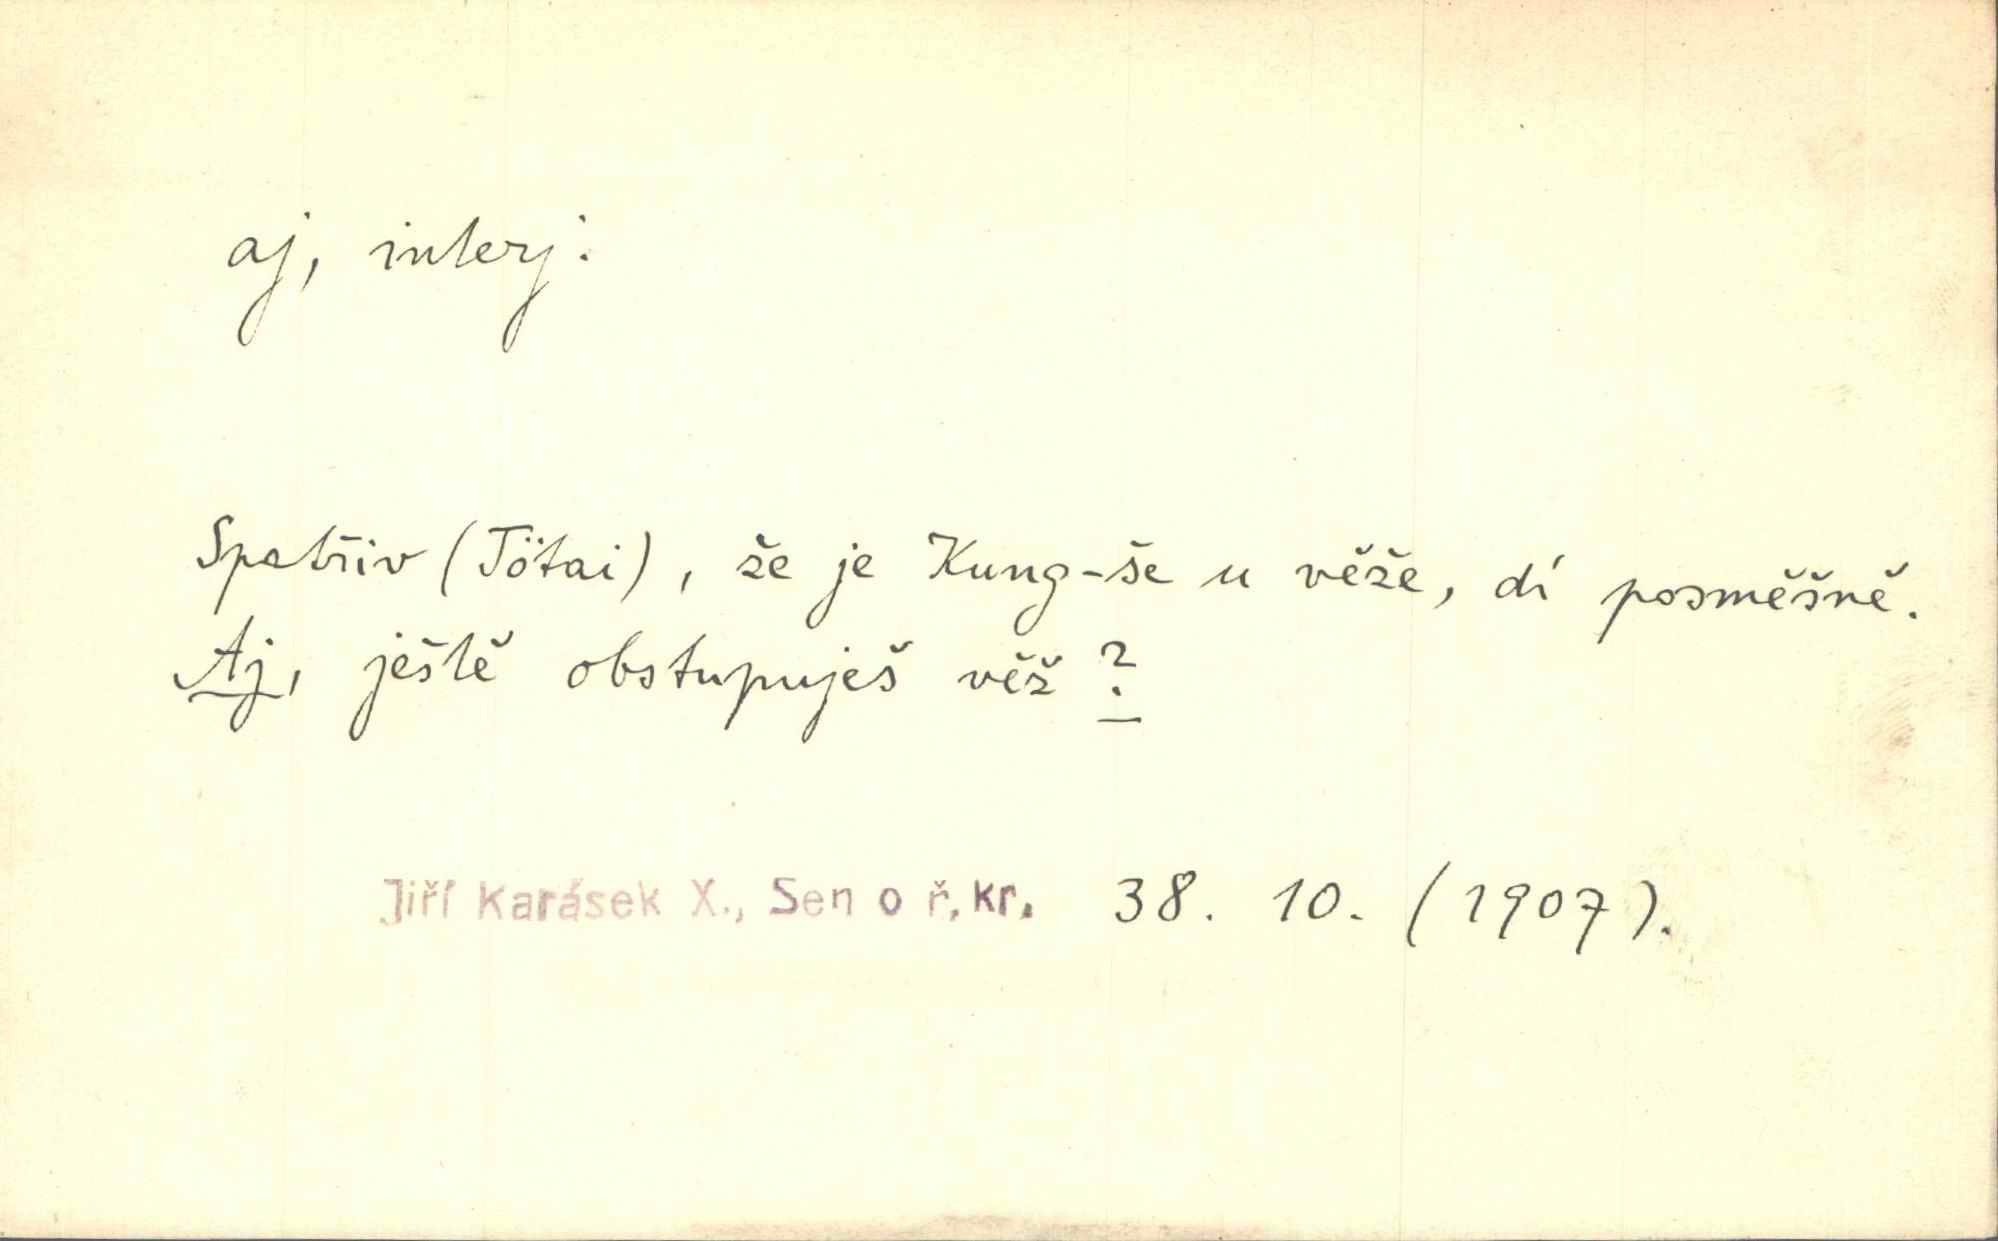 aj, interj.
Spatřiv (Tötai), že je Kung-še u věže, dí posměšně.
Aj, ještě obstupuješ věž?
Jiří Karásek X., Sen o ř. kr. 38. 10. (1907).